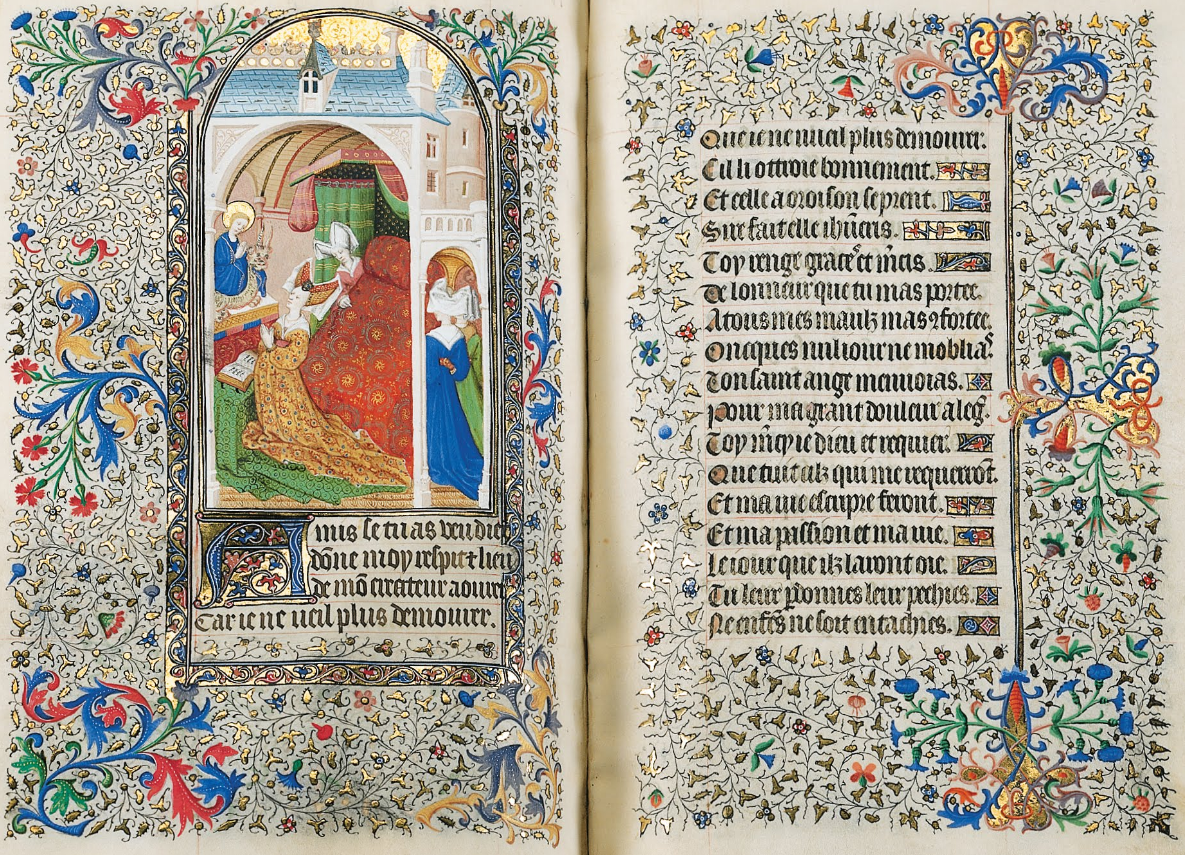 Amis se tu as vendier
dōne moy respit ⁊ lieu
de mō createur aourer
Car ie ne ueil plus demourer.
Que ie ne uueil plus demourer.
Cil li ottroie bonnement.
Et celle a oroison se prent.
Sire fait elle ihūcris.
Toy renge grace et mcis.
De lonneur que tu mas portee.
A tous mes maulz mas ꝯfortee.
Oncques nul iour ne moblias.
Ton saint ange menuoias.
Pour ma grant douleur aleg̃.
Toy mcye dieu et requier.
Que tuit cilz qui me requerrōt.
Et ma uie escripre feront.
Et ma passion et ma uie.
Le iour que ilz lauront oie.
Tu leur pdonnes leur pechies.
Ne enfes ne soit entachies.